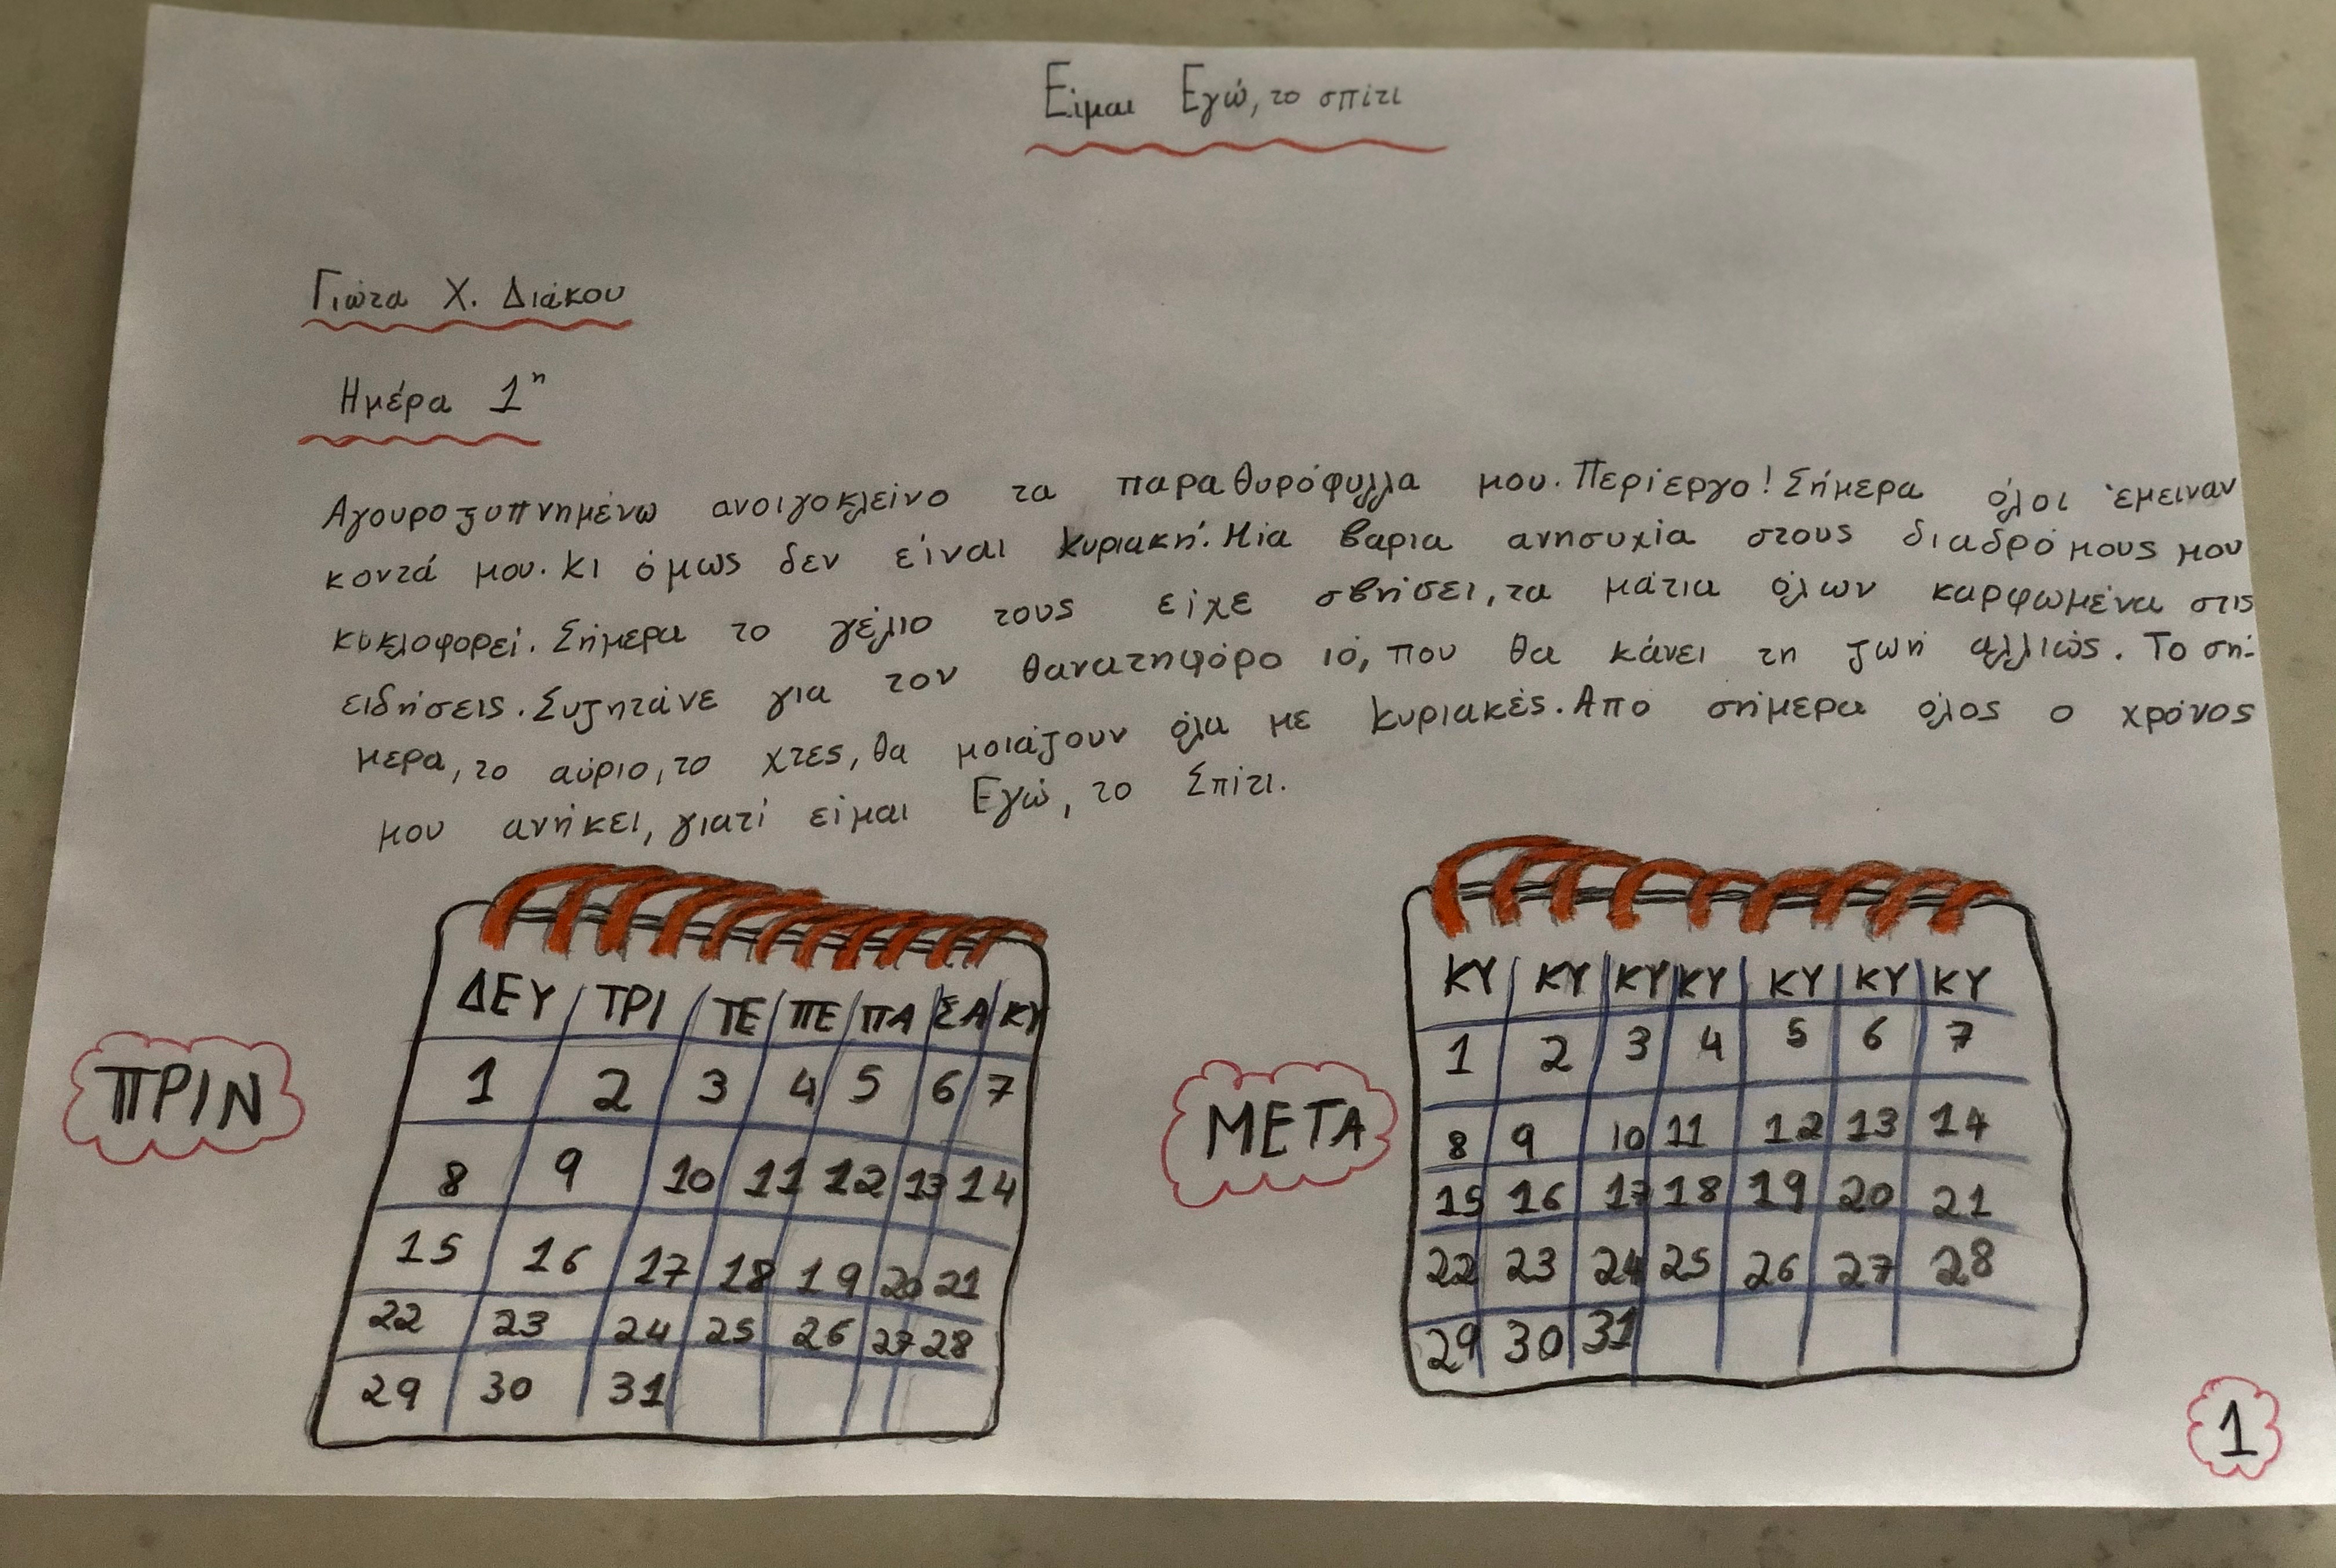 Είμαι Εγώ, το σπίτι
Γιώτα Χ. Διάκου
Ημέρα 1η
Αγουροξυπνημένω ανοιγοκλείνο τα παραθυρόφυλλα μου. Περίεργο! Σήμερα όλοι έμειναν
κοντά μου. κι όμως δεν είναι κυριακή. Μία βαρια ανησυχία στους διαδρόμους μου
κυκλοφορεί. Σήμερα το γέλιο τους είχε σβήσει, τα μάτια όλων καρφωμένα στις
ειδήσεις. Συζητάνε για τον θανατηφόρο ιό, που θα κάνει τη ζωή αλλιώς. Το σή-
μερα, το αύριο, το χτες, θα μοιάζουν όλα με κυριακές. Από σήμερα όλος ο χρόνος
μου ανήκει, γιατί είμαι Εγώ, το Σπίτι.
ΠΡΙΝ
ΔΕΥ ΤΡΙ ΤΕ ΠΕ ΠΑ ΣΑ ΚΥ
1 2 3 4 5 6 7
8 9 10 11 12 13 14
15 16 17 18 19 20 21
22 23 24 25 26 27 28
29 30 31
ΜΕΤΑ
ΚΥ ΚΥ ΚΥ ΚΥ ΚΥ ΚΥ ΚΥ
1 2 3 4 5 6 7
8 9 10 11 12 13 14
15 16 17 18 19 20 21
22 23 24 25 26 27 28
29 30 31
1